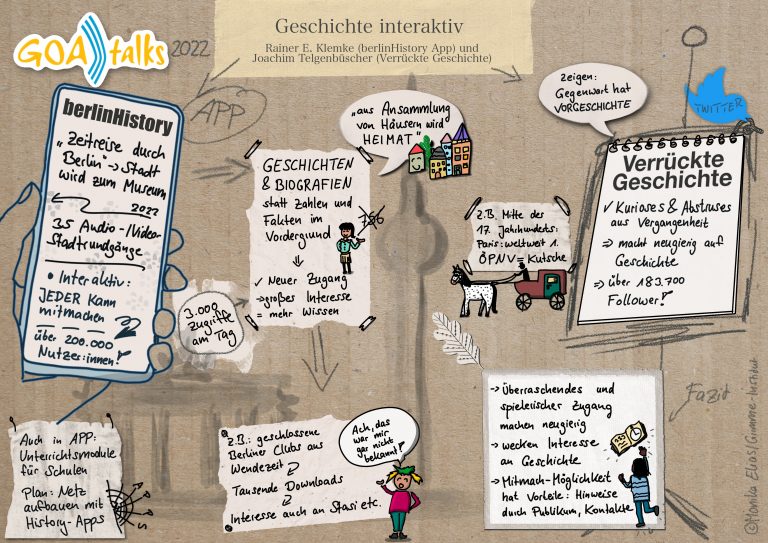 GOAtalks 2022
Geschichte interaktiv
Rainer E. Klemke (berlinHistory App) und
Joachim Telgenbüscher (Verrückte Geschichte)
APP
berlinHistory
„Zeitreise durch
Berlin" → Stadt
wird zum Museum
2022
35 Audio-/Video-
Stadtrundgänge
• Interaktiv:
JEDER kann
mitmachen
über 200.000
Nutzer:innen!
3.000
Zugriffe
am Tag
Auch in APP:
Unterrichtsmodule
für Schulen
Plan: Netz
aufbauen mit
History-Apps
„aus Ansammlung
von Häusern wird
HEIMAT"
GESCHICHTEN
& BIOGRAFIEN
statt Zahlen und
Fakten im
Vordergrund
756
✓ Neuer Zugang
→ großes Interesse
= mehr Wissen
z.B.: geschlossene
Berliner Clubs aus
Wendezeit
Tausende Downloads
Interesse auch an Stasi etc.
Ach, das
war mir
gar nicht
bekannt!
zeigen:
Gegenwart hat
VORGESCHICHTE
TWITTER
Verrückte
Geschichte
✓ Kurioses & Abstruses
aus Vergangenheit
⇒ macht neugierig auf
Geschichte
⇒ über 183.700
Follower!
z.B. Mitte des
17. Jahrhunderts:
Paris: weltweit 1.
ÖPNV = Kutsche
Fazit
→ Überraschendes und
spielerischer Zugang
machen neugierig
→ wecken Interesse
an Geschichte
→ Mitmach-Möglichkeit
hat Vorteile: Hinweise
durch Publikum, Kontakte
©Monika Elias/Grimme-Institut